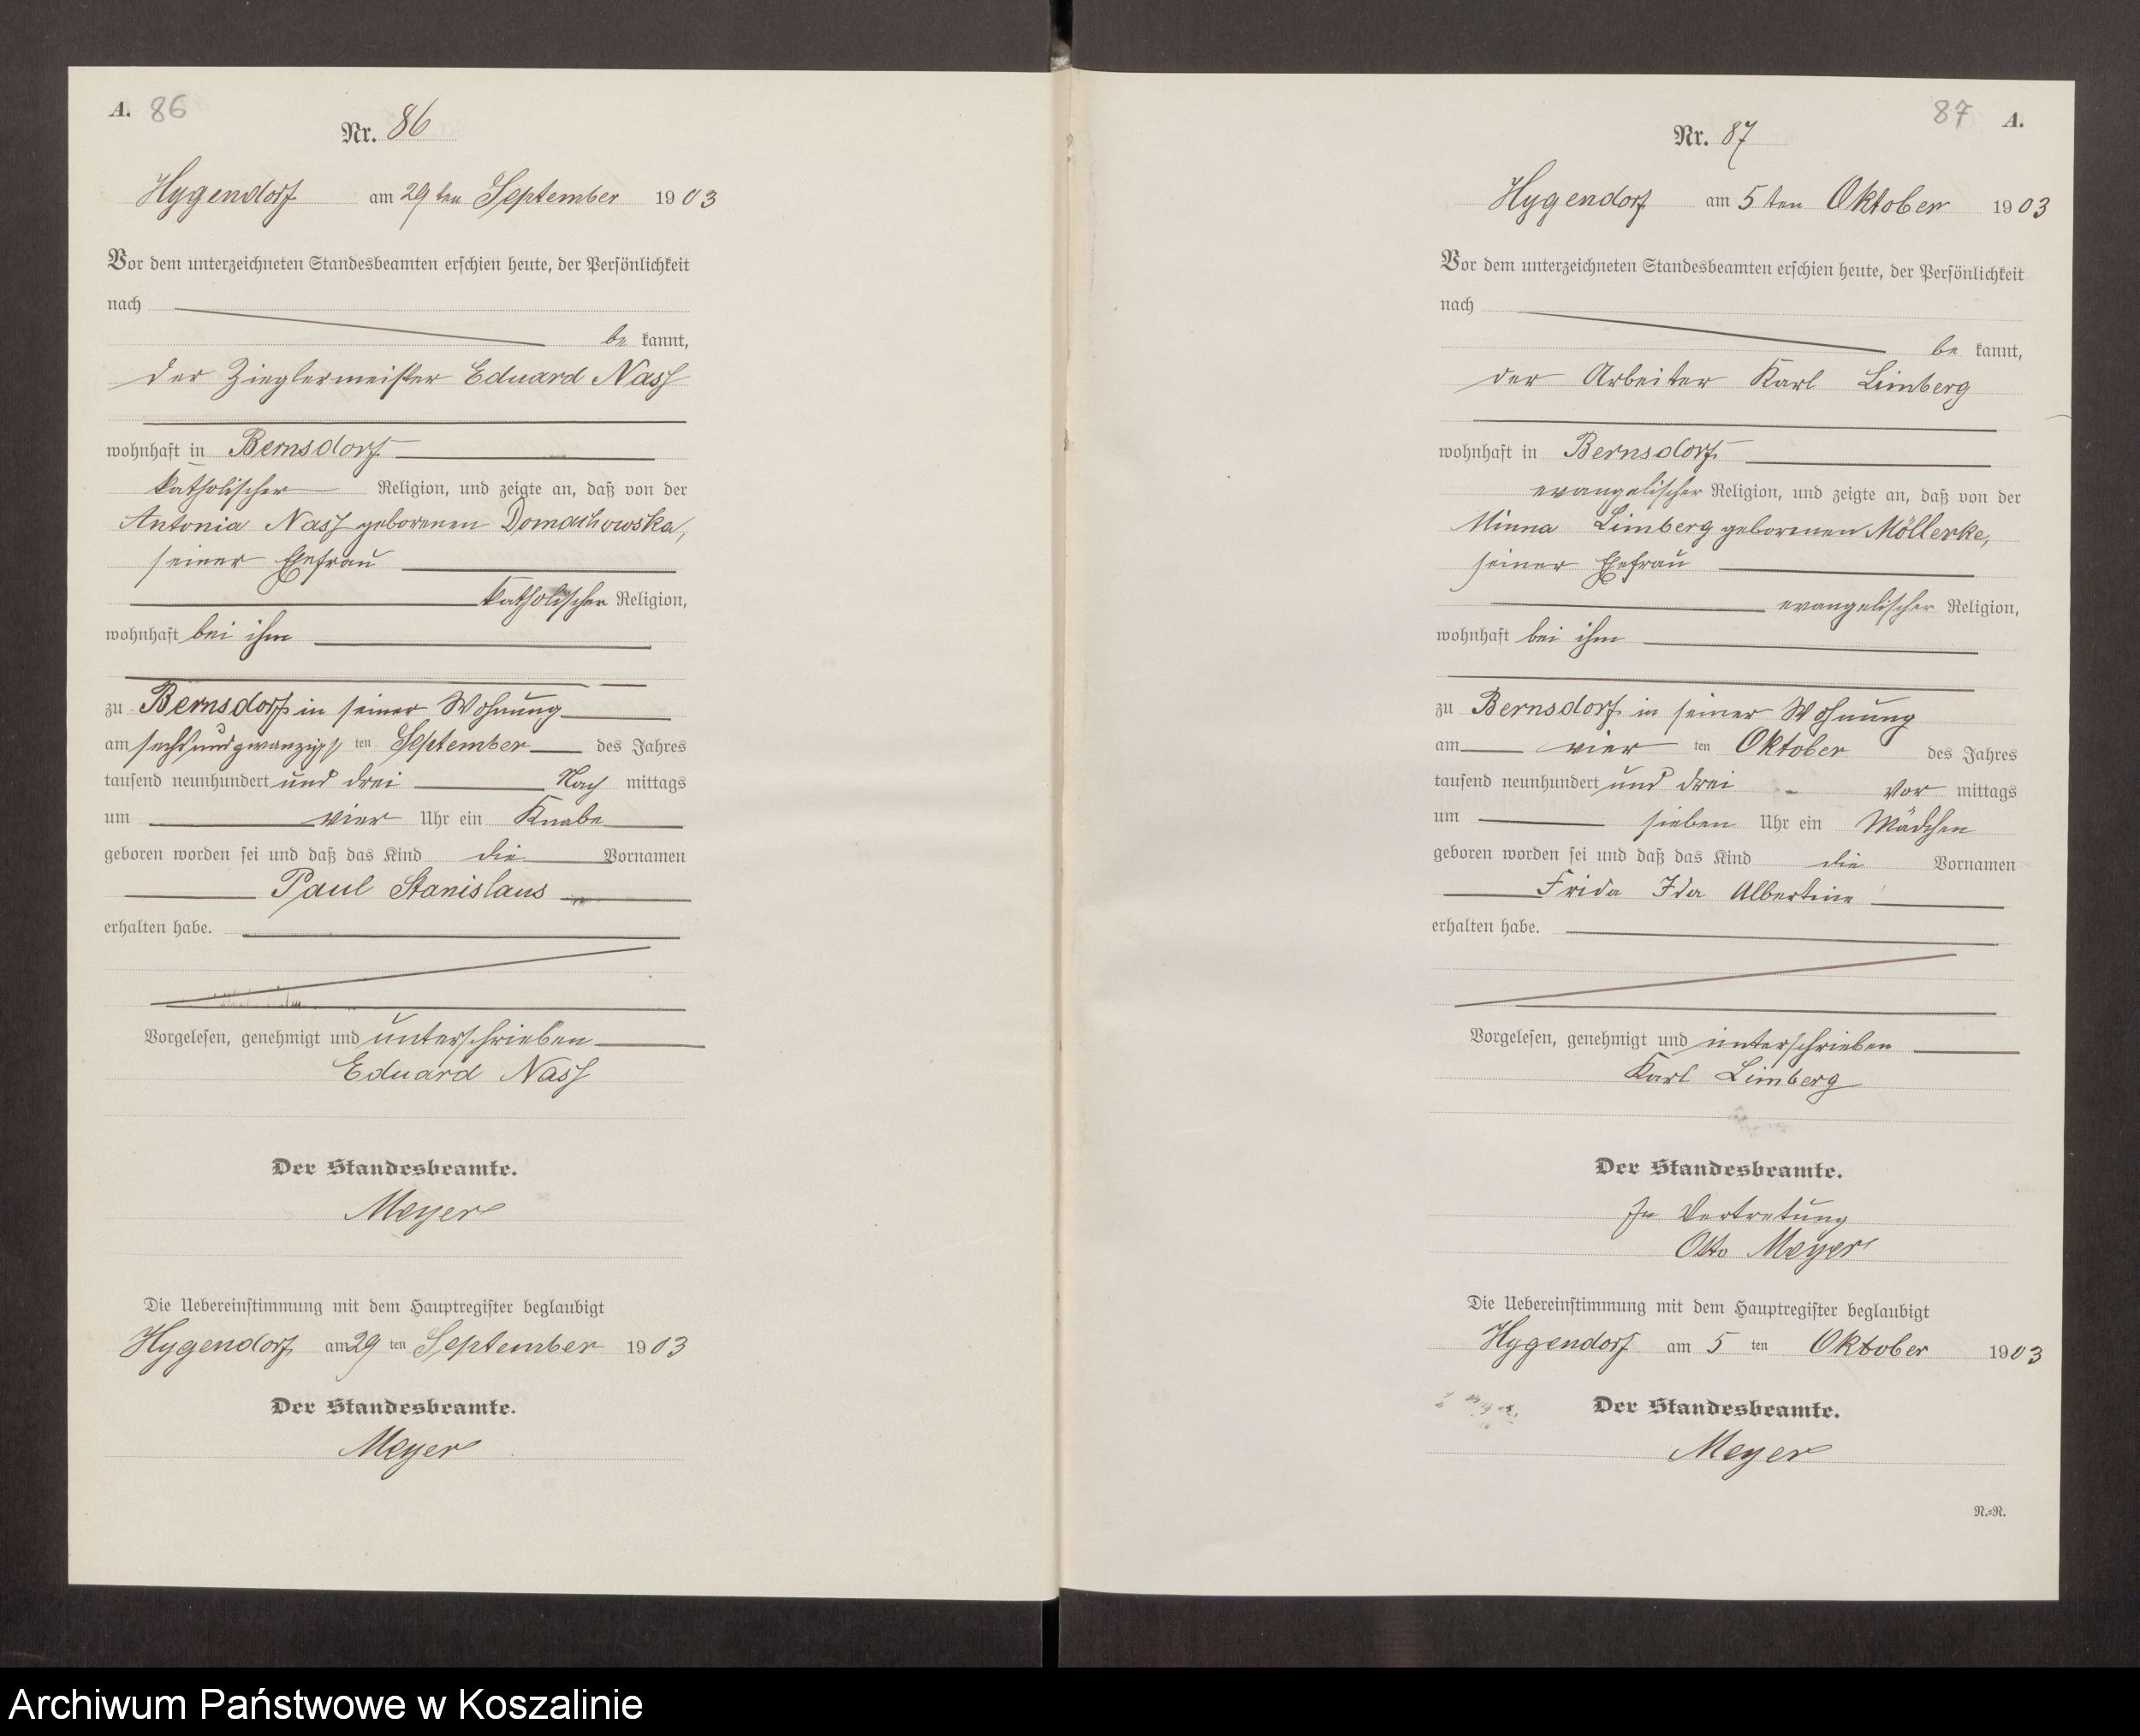 A. 86
Nr. 86
Hygendorf am 29ten September 1903
Vor dem unterzeichneten Standesbeamten erschien heute, der Persönlichkeit
nach
be kannt,
der Zieglermeister Eduard Nass
wohnhaft in Bernsdorf
katholischer Religion, und zeigte an, daß von der
Antonia Nass geborenen Domachowska,
seiner Ehefrau
katholischer Religion,
wohnhaft bei ihm
zu Bernsdorf in seiner Wohnung
am sechsundzwanzigsten September des Jahres
tausend neunhundert und drei Nach mittags
um vier Uhr ein Knabe
geboren worden sei und daß das Kind die Vornamen
Paul Stanislaus
erhalten habe.
Vorgelesen, genehmigt und unterschrieben
Eduard Nass
Der Standesbeamte.
Meyer
Die Uebereinstimmung mit dem Hauptregister beglaubigt
Hygendorf am 29 ten September 1903
Der Standesbeamte.
Meyer
87 A.
Nr. 87
Hygendorf am 5ten Oktober 1903
Vor dem unterzeichneten Standesbeamten erschien heute, der Persönlichkeit
nach
be kannt,
der Arbeiter Karl Limberg
wohnhaft in Bernsdorf
evangelischer Religion, und zeigte an, daß von der
Minna Limberg geborenen Möllerke,
seiner Ehefrau
evangelischer Religion,
wohnhaft bei ihm
zu Bernsdorf in seiner Wohnung
am vier ten Oktober des Jahres
tausend neunhundert und drei Vor mittags
um sieben Uhr ein Mädchen
geboren worden sei und daß das Kind die Vornamen
Frida Ida Albertine
erhalten habe.
Vorgelesen, genehmigt und unterschrieben
Karl Limberg
Der Standesbeamte.
In Vertretung
Otto Meyer
Die Uebereinstimmung mit dem Hauptregister beglaubigt
Hygendorf am 5 ten Oktober 1903
Der Standesbeamte.
Meyer
N.=N.
Archiwum Państwowe w Koszalinie